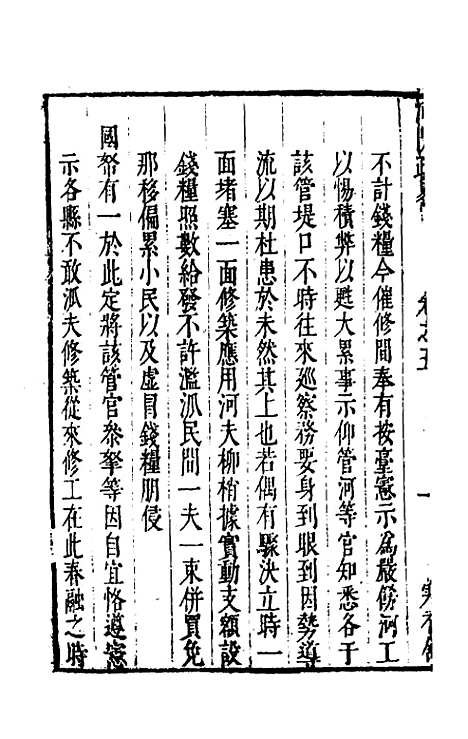 不計錢糧今催修間奉有按臺憲示爲嚴飭河工
以惕積弊以甦大累事示仰管河等官知悉各于
該管堤口不時往來廵察務要身到眼到因勢導
流以期杜患於未然其上也若偶有驟決立時一
面堵塞一面修築應用河夫柳梢據實動支額設
錢糧照數給發不許濫泒民間一夫一束併買免
那移偏累小民以及虛冒錢糧朋侵
國帑有一於此定將該管官叅拏等因自宜恪遵憲
示各縣不敢泒夫修築從來修工在此春融之時
卷之五
一